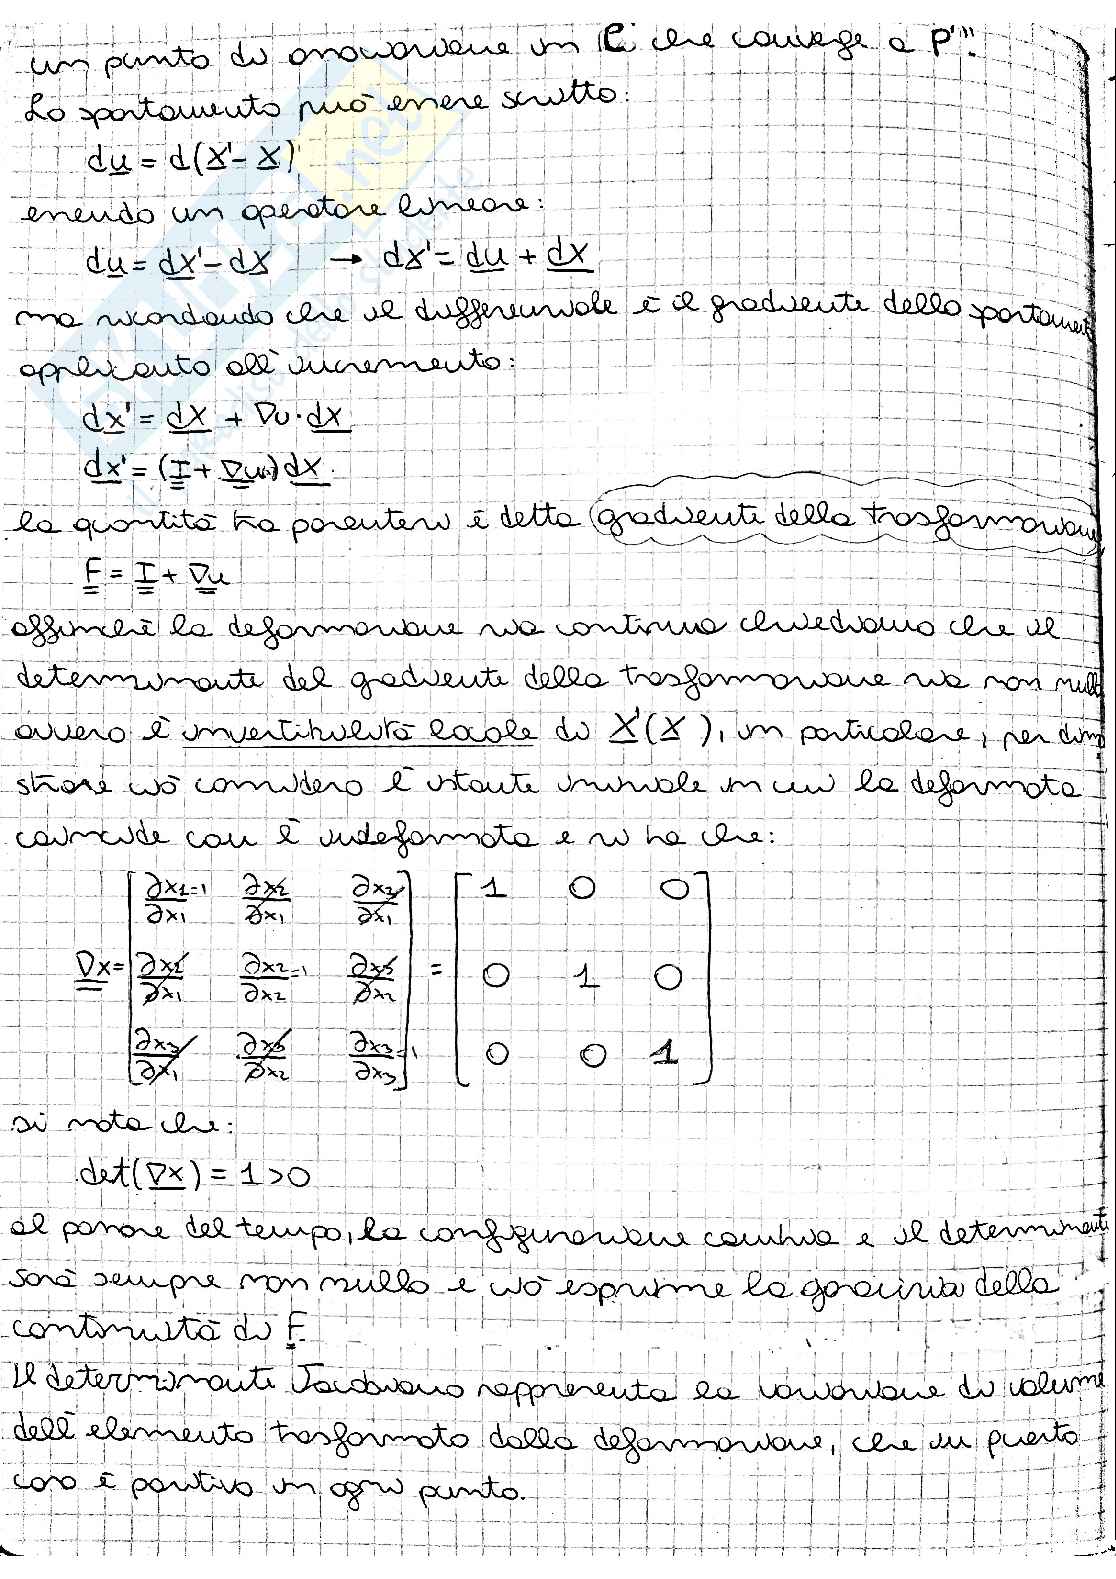 un punto di in C che converge a P'".
Lo spostamento può essere scritto:
du = d(X'- X)
essendo un operatore lineare:
du = dX' - dX → dx' = du + dX
ma ricordando che il differenziale è il gradiente dello spostament
applicato all'incremento:
dx' = dX + ∇u · dX
dx' = (I + ∇u) dX.
la quantità tra parentesi è detta gradiente della trasformazione
F = I + ∇u
affinché la deformazione sia continua chiediamo che il
determinante del gradiente della trasformazione sia non null
ovvero l'invertibilità locale di X'(X), in particolare, per dim
strare ciò considero l'istante iniziale in cui la deformata
coincide con l'indeformata e si ha che:
∂x1/∂x1=1 ∂x2/∂x1 ∂x3/∂x1 1 0 0
∇x = ∂x1/∂x1 ∂x2/∂x2=1 ∂x3/∂x2 = 0 1 0
∂x3/∂x1 ∂x3/∂x2 ∂x3/∂x3=1 0 0 1
si nota che:
det(∇x) = 1 > 0
al passare del tempo, la configurazione cambia e il determinante
sarà sempre non nullo e ciò esprime la garanzia della
continuità di F
Il determinante Jacobiano rappresenta la variazione di volume
dell'elemento trasformato dalla deformazione, che in questo
caso è positivo in ogni punto.